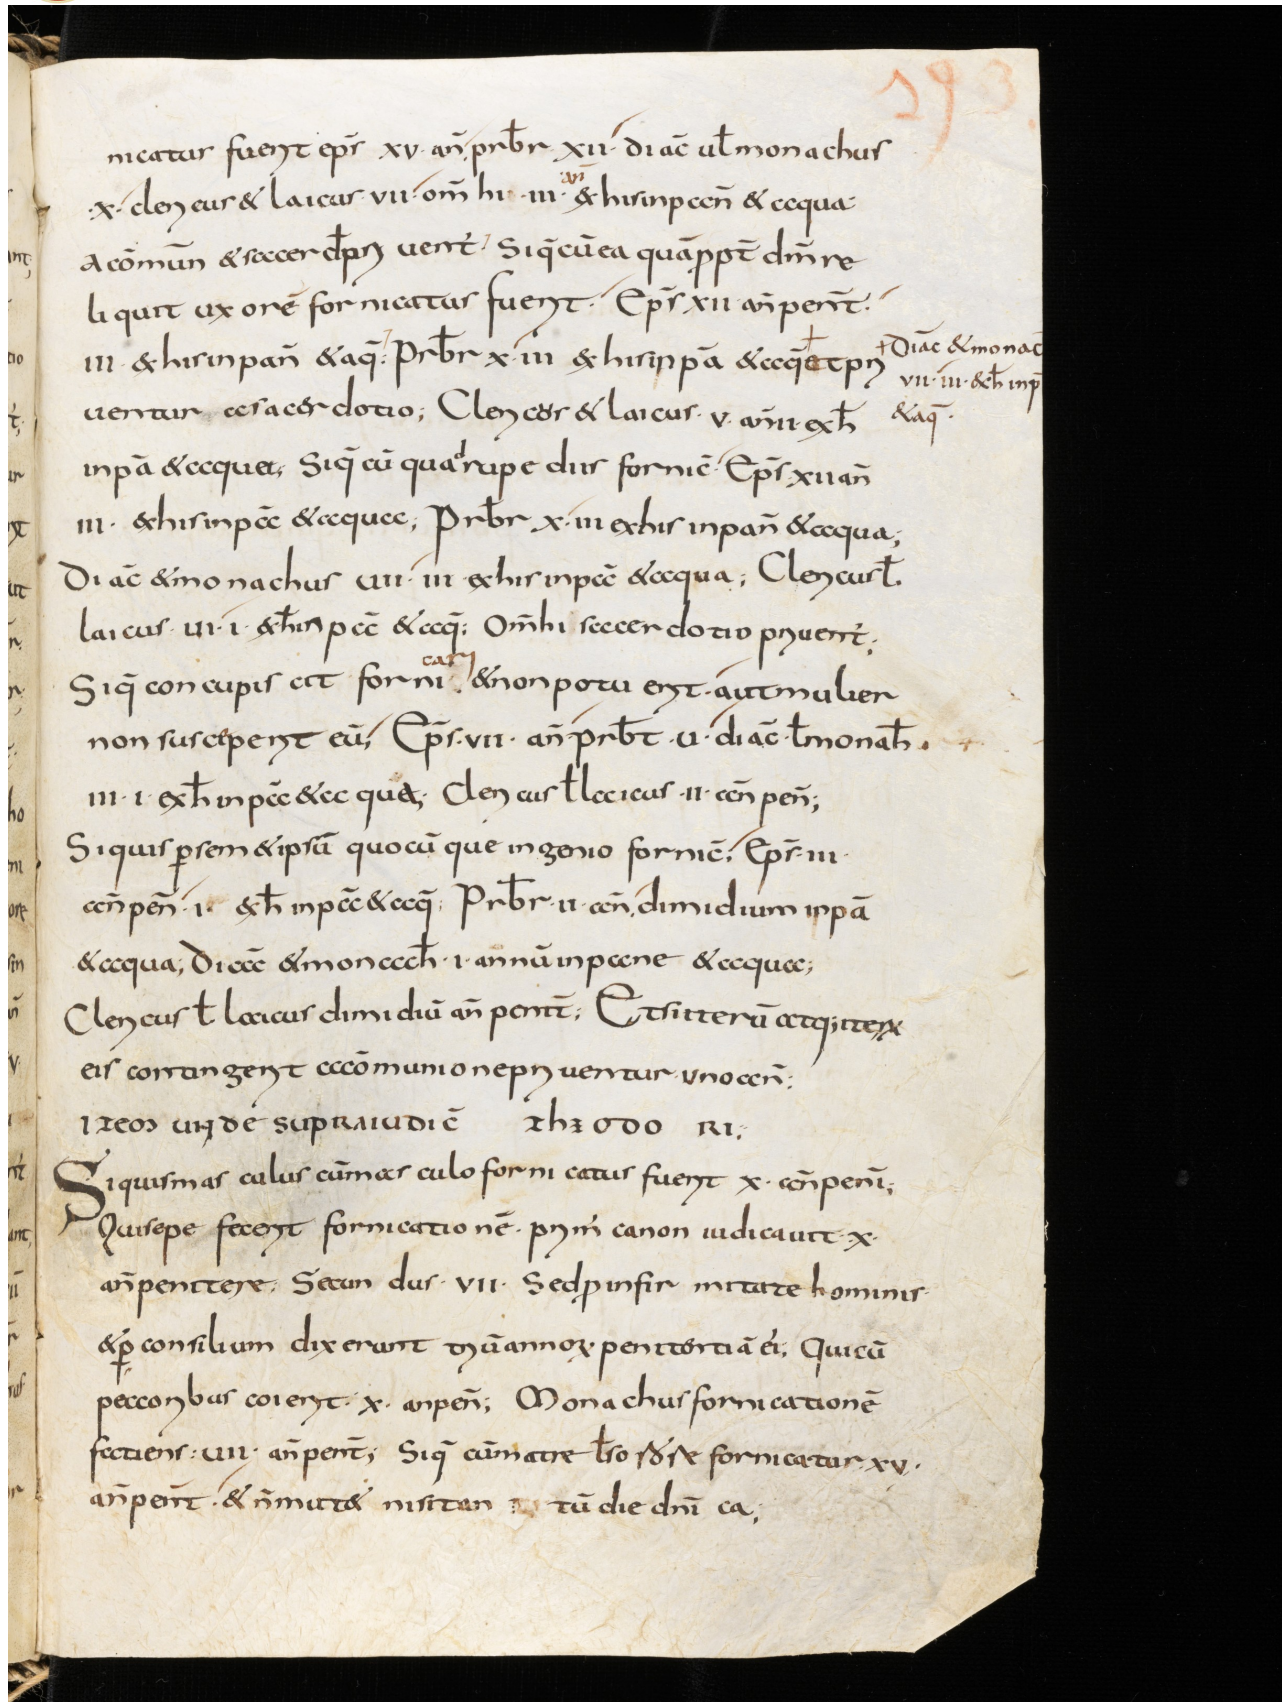 193
nicatus fuerit ep̄s xv· an̄ prb̄r xii· diac̄ ul̄ monachus
·x· clericus & laicus· vii· om̄ hi· iii· an̄ & his in pan̄ & aqua
a com̄un̄ & sacerd̄ priuent̄· Siq̄ cū ea quā ppt̄ dm̄ re
liquit uxorē fornicatus fuerit· Ep̄s xii an̄ penit̄·
iii· & his in pan̄ & aq̄· Prb̄r x· iii & his in pā & aq̄ & pri
+ Diac̄ & monac̄
vii· iii· & h̄ in p̄
& aq̄·
uentur a sacerdotio; Clericus & laicus· v· an̄ ii· ex h̄
in pā & aqua; Siq̄ cū quadrupedius fornic̄· Ep̄s xii an̄
iii· & his in pā & aqua; Prb̄r x· iii ex his in pan̄ & aqua;
Diac̄ & monachus viii· iii· ex his in pā & aqua; Clericus l̄
laicus· vi· i· & h̄ in pā & aq̄; Om̄ hi sacerdotio priuent̄;
Siq̄ concupiscit fornicari & non potuerit· aut mulier
non susceperit eū; Ep̄s· vii· an̄ prb̄t· u· diac̄ l̄ monah̄
iii· i· ex h̄ in pā & aqua; Clericus l̄ laicus· ii· an̄ pen̄;
Siquis p̱ sem&ipsū quocūque ingenio fornic̄; Ep̄s· iii·
an̄ pen̄· i· & h̄ in pā & aq̄; Prb̄r· ii· an̄ dimidium in pā
& aqua; Diac̄ & monach̄· i· annū in pane & aqua;
Clericus l̄ laicus dimidiū an̄ penit̄; Et si iterū atq; iterū
eis contingerit a cōmunione priuentur uno an̄;
ITEM UNDE SUPRA IUDIC̄ THEODORI;
Siquis masculus cū masculo fornicatus fuerit x· an̄ penit̄;
Qui sepe fecerit fornicationē· prim̄ canon iudicauit· x·
an̄ penitere; Secundus· vii· Sed p̱ infirmitate hominis·
& p̱ consilium dixerunt triū annoꝝ penitentiā ei; Qui cū
peccoribus coierit· x· an pen̄; Monachus fornicationē
faciens· viii· an̄ penit̄; Siq̄ cū matre l̄ sorore fornicatur xv·
an̄ penit̄· & n̄ mut& nisi tantū die dn̄ica;